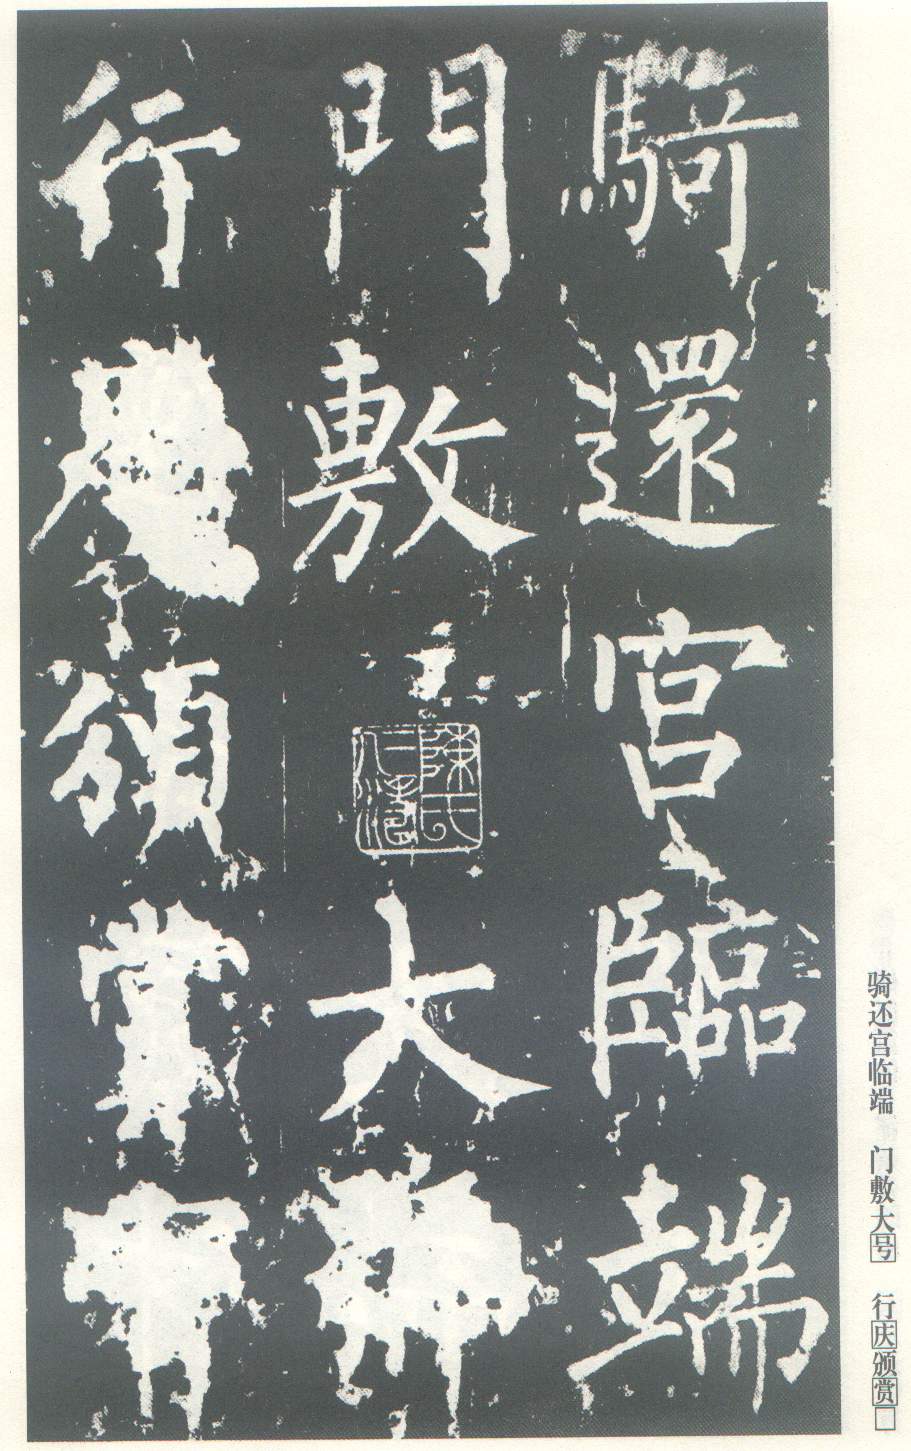 騎還宮臨端
門敷大
行慶頒賞
陳氏
仁濤
骑还宫临端 门敷大号 行庆颁赏□